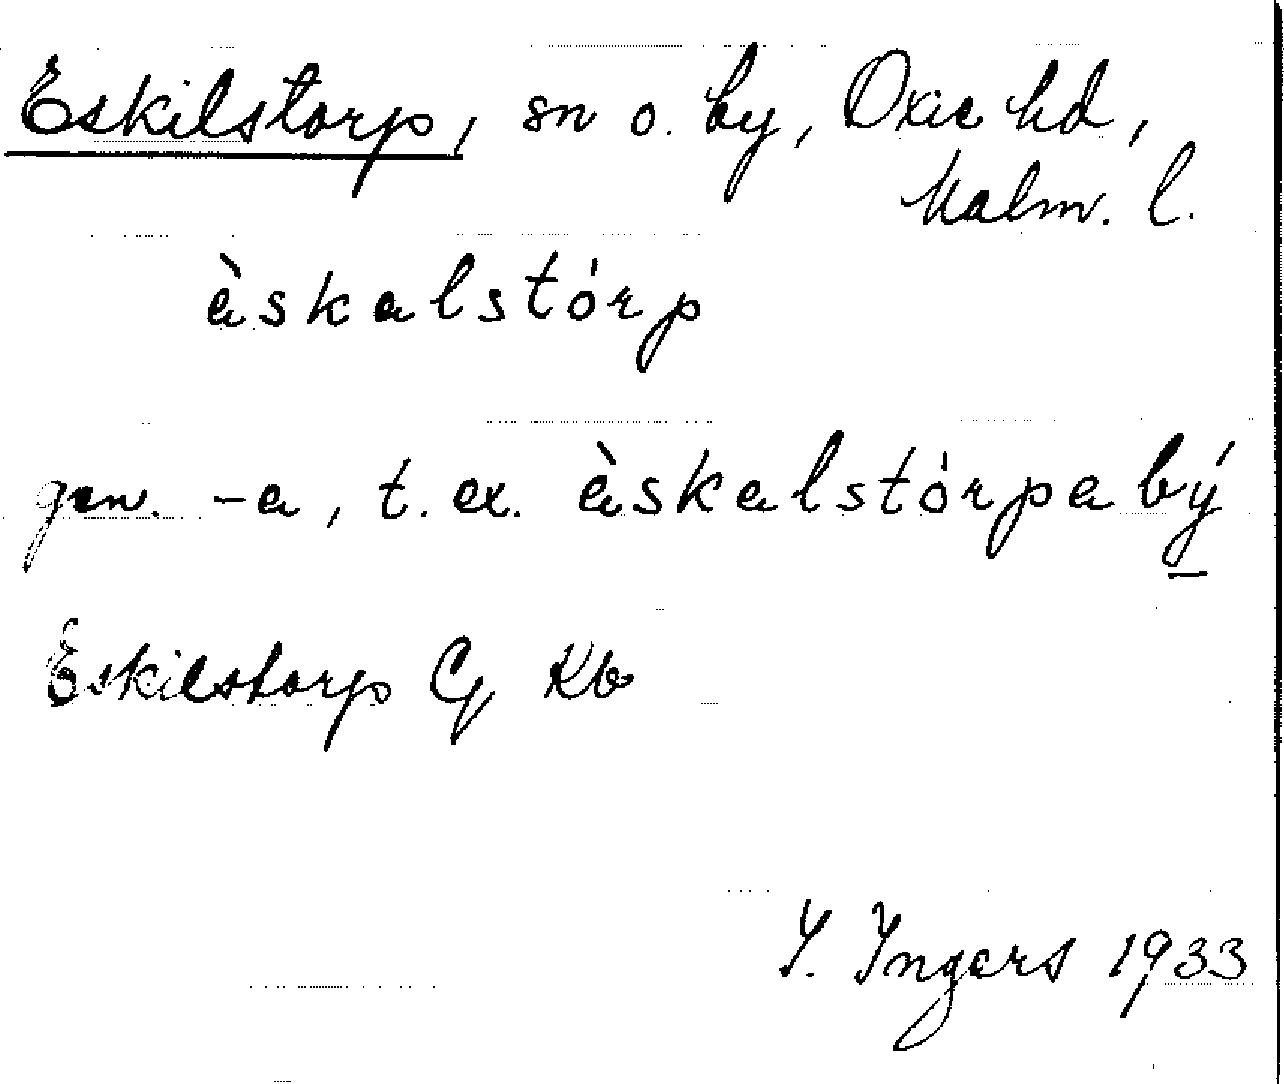 Eskilstorp, sn o. by, Oxie hd,
Malm. l.
àskalstórp
gen. -a, t. ex. àskalstórpa bý
Eskilstorp Cg Kb
I. Ingers 1933